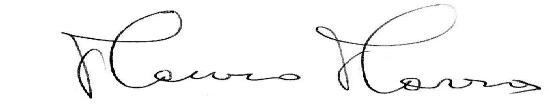 Mauro Morra